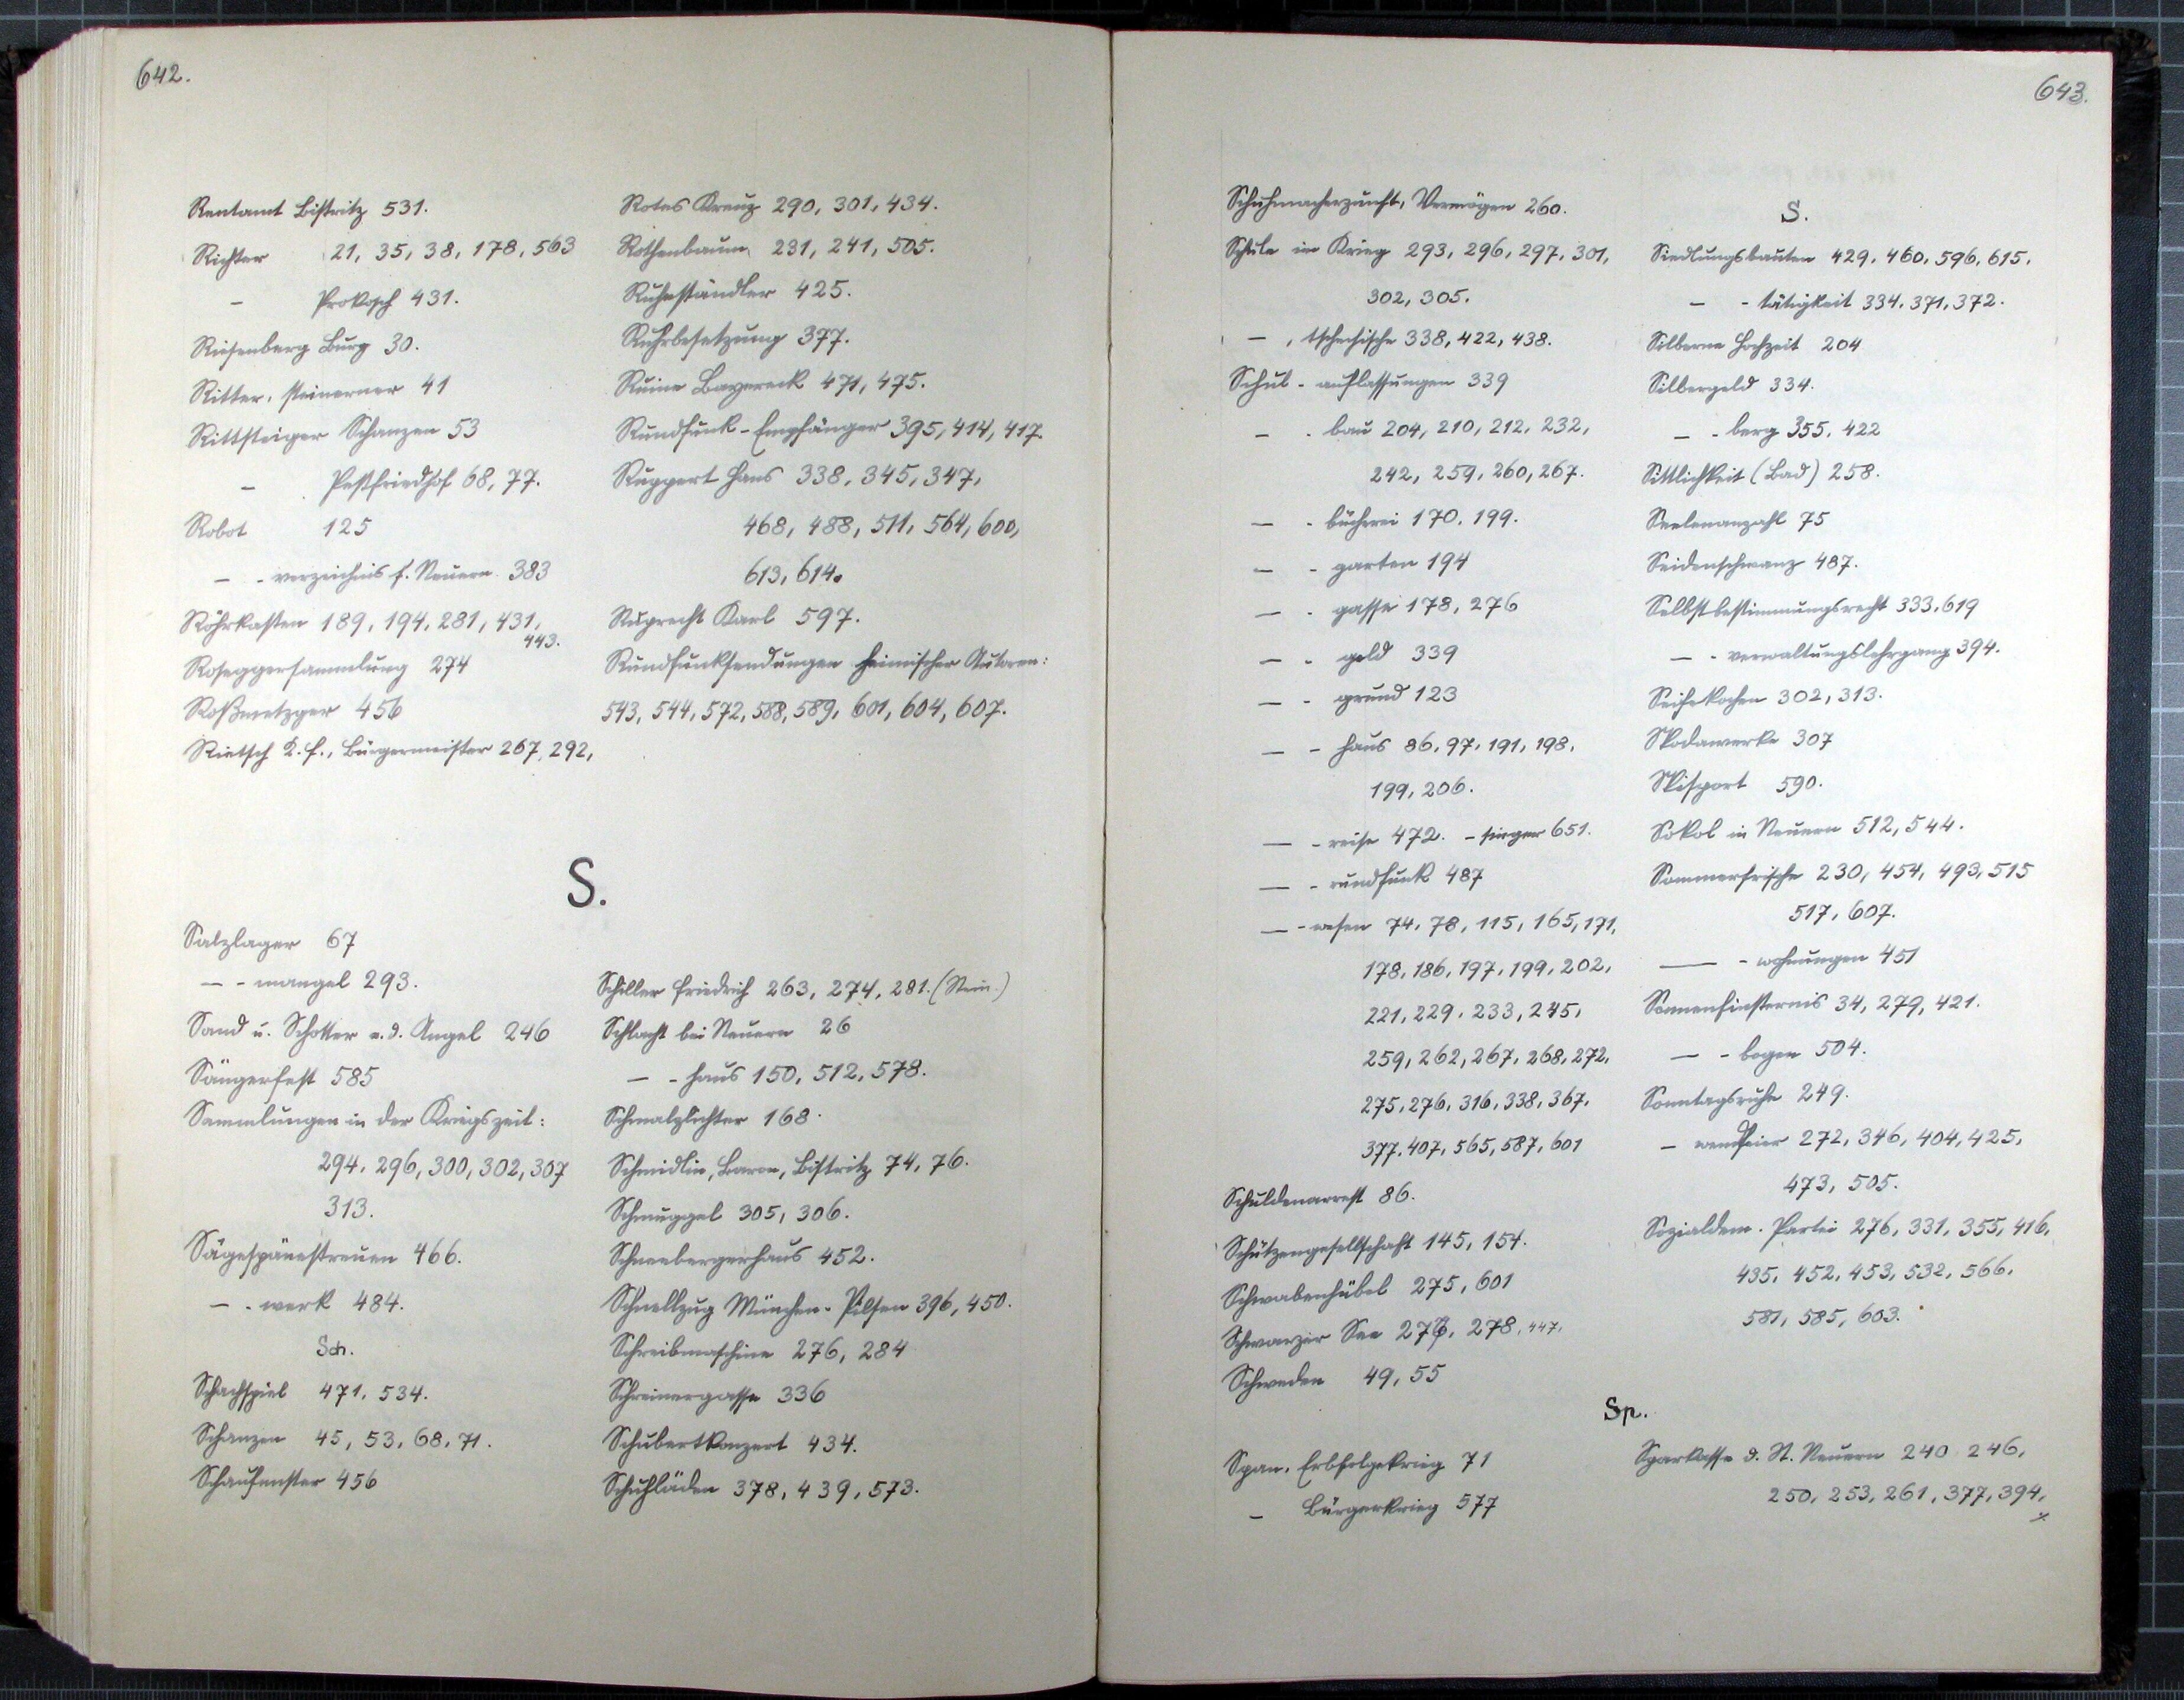 642.
Rentamt Bistritz 531.
Richter 21, 35, 38, 178, 563
- Prokosch 431.
Riesenberg Burg 30.
Ritter, steinerner 41
Rittsteiger Schanzen 53
- Pestfriedhof 68, 77.
Robot 125
- - verzeichnis f. Neuern 383
Röhrkasten 189, 194, 281, 431,
443.
Roseggersammlung 274
Roßmetzger 456
Rietsch K. F., Bürgermeister 267, 292,
Rotes Kreuz 290, 301, 434.
Rothenbaum 231, 241, 505.
Ruheständler 425.
Ruhrbesetzung 377.
Ruine Bayereck 471, 475.
Rundfunk-Empfänger 395, 414, 417.
Ruppert Hans 338, 345, 347,
468, 488, 511, 564, 600,
613, 614.
Ruprecht Karl 597.
Rundfunksendungen heimischer Autoren:
543, 544, 572, 588, 589, 601, 604, 607.
S.
Salzlager 67
- - mangel 293.
Sand u. Schotter a. d. Angel 246
Sängerfest 585
Sammlungen in der Kriegszeit:
294, 296, 300, 302, 307
313.
Sägespänestreuen 466.
- - werk 484.
Sch.
Schachspiel 471, 534.
Schanzen 45, 53, 68, 71.
Schaufenster 456
Schiller Friedrich 263, 274, 281. (Stein.)
Schlacht bei Neuern 26
- - haus 150, 512, 578.
Schmalzlichter 168.
Schmidlin, Baron, Bistritz 74, 76.
Schmuggel 305, 306.
Schneebergerhaus 452.
Schnellzug München-Pilsen 396, 450.
Schreibmaschine 276, 284
Schreinergasse 336
Schubertkonzert 434.
Schuhläden 378, 439, 573.
643.
Schuhmacherzunft, Vermögen 260.
Schule im Krieg 293, 296, 297, 301,
302, 305.
- , tschechische 338, 422, 438.
Schul - auflassungen 339
- - bau 204, 210, 212, 232,
242, 259, 260, 267.
- - bücherei 170, 199.
- - garten 194
- - gasse 178, 276
- - geld 339
- - grund 123
- - haus 86, 97, 191, 198,
199, 206.
- - reise 472. - sieger 651.
- - rundfunk 487
- - wesen 74, 78, 115, 165, 171,
178, 186, 197, 199, 202,
221, 229, 233, 245,
259, 262, 267, 268, 272,
275, 276, 316, 338, 367,
377, 407, 565, 587, 601
Schuldenarrest 86.
Schützengesellschaft 145, 154.
Schwabenhübel 275, 601
Schwarzer See 276, 278, 447.
Schweden 49, 55
S.
Siedlungsbauten 429, 460, 596, 615,
- - tätigkeit 334, 371, 372.
Silberne Hochzeit 204
Silbergeld 334.
- - berg 355, 422
Sittlichkeit (Bad) 258.
Seelenanzahl 75
Seidenschwanz 487.
Selbstbestimmungsrecht 333, 619
- - verwaltungslehrgang 394.
Seifekochen 302, 313.
Skodawerke 307
Skisport 590.
Sokol in Neuern 512, 544.
Sommerfrische 230, 454, 493, 515
517, 607.
- - wohnungen 451
Sonnenfinsternis 34, 279, 421.
- - bogen 504.
Sonntagsruhe 249.
- wendfeier 272, 346, 404, 425,
473, 505.
Sozialdem. Partei 276, 331, 355, 416,
435, 452, 453, 532, 566,
581, 585, 603.
Sp.
Span. Erbfolgekrieg 71
- Bürgerkrieg 577
Sparkasse d. St. Neuern 240 246,
250, 253, 261, 377, 394,